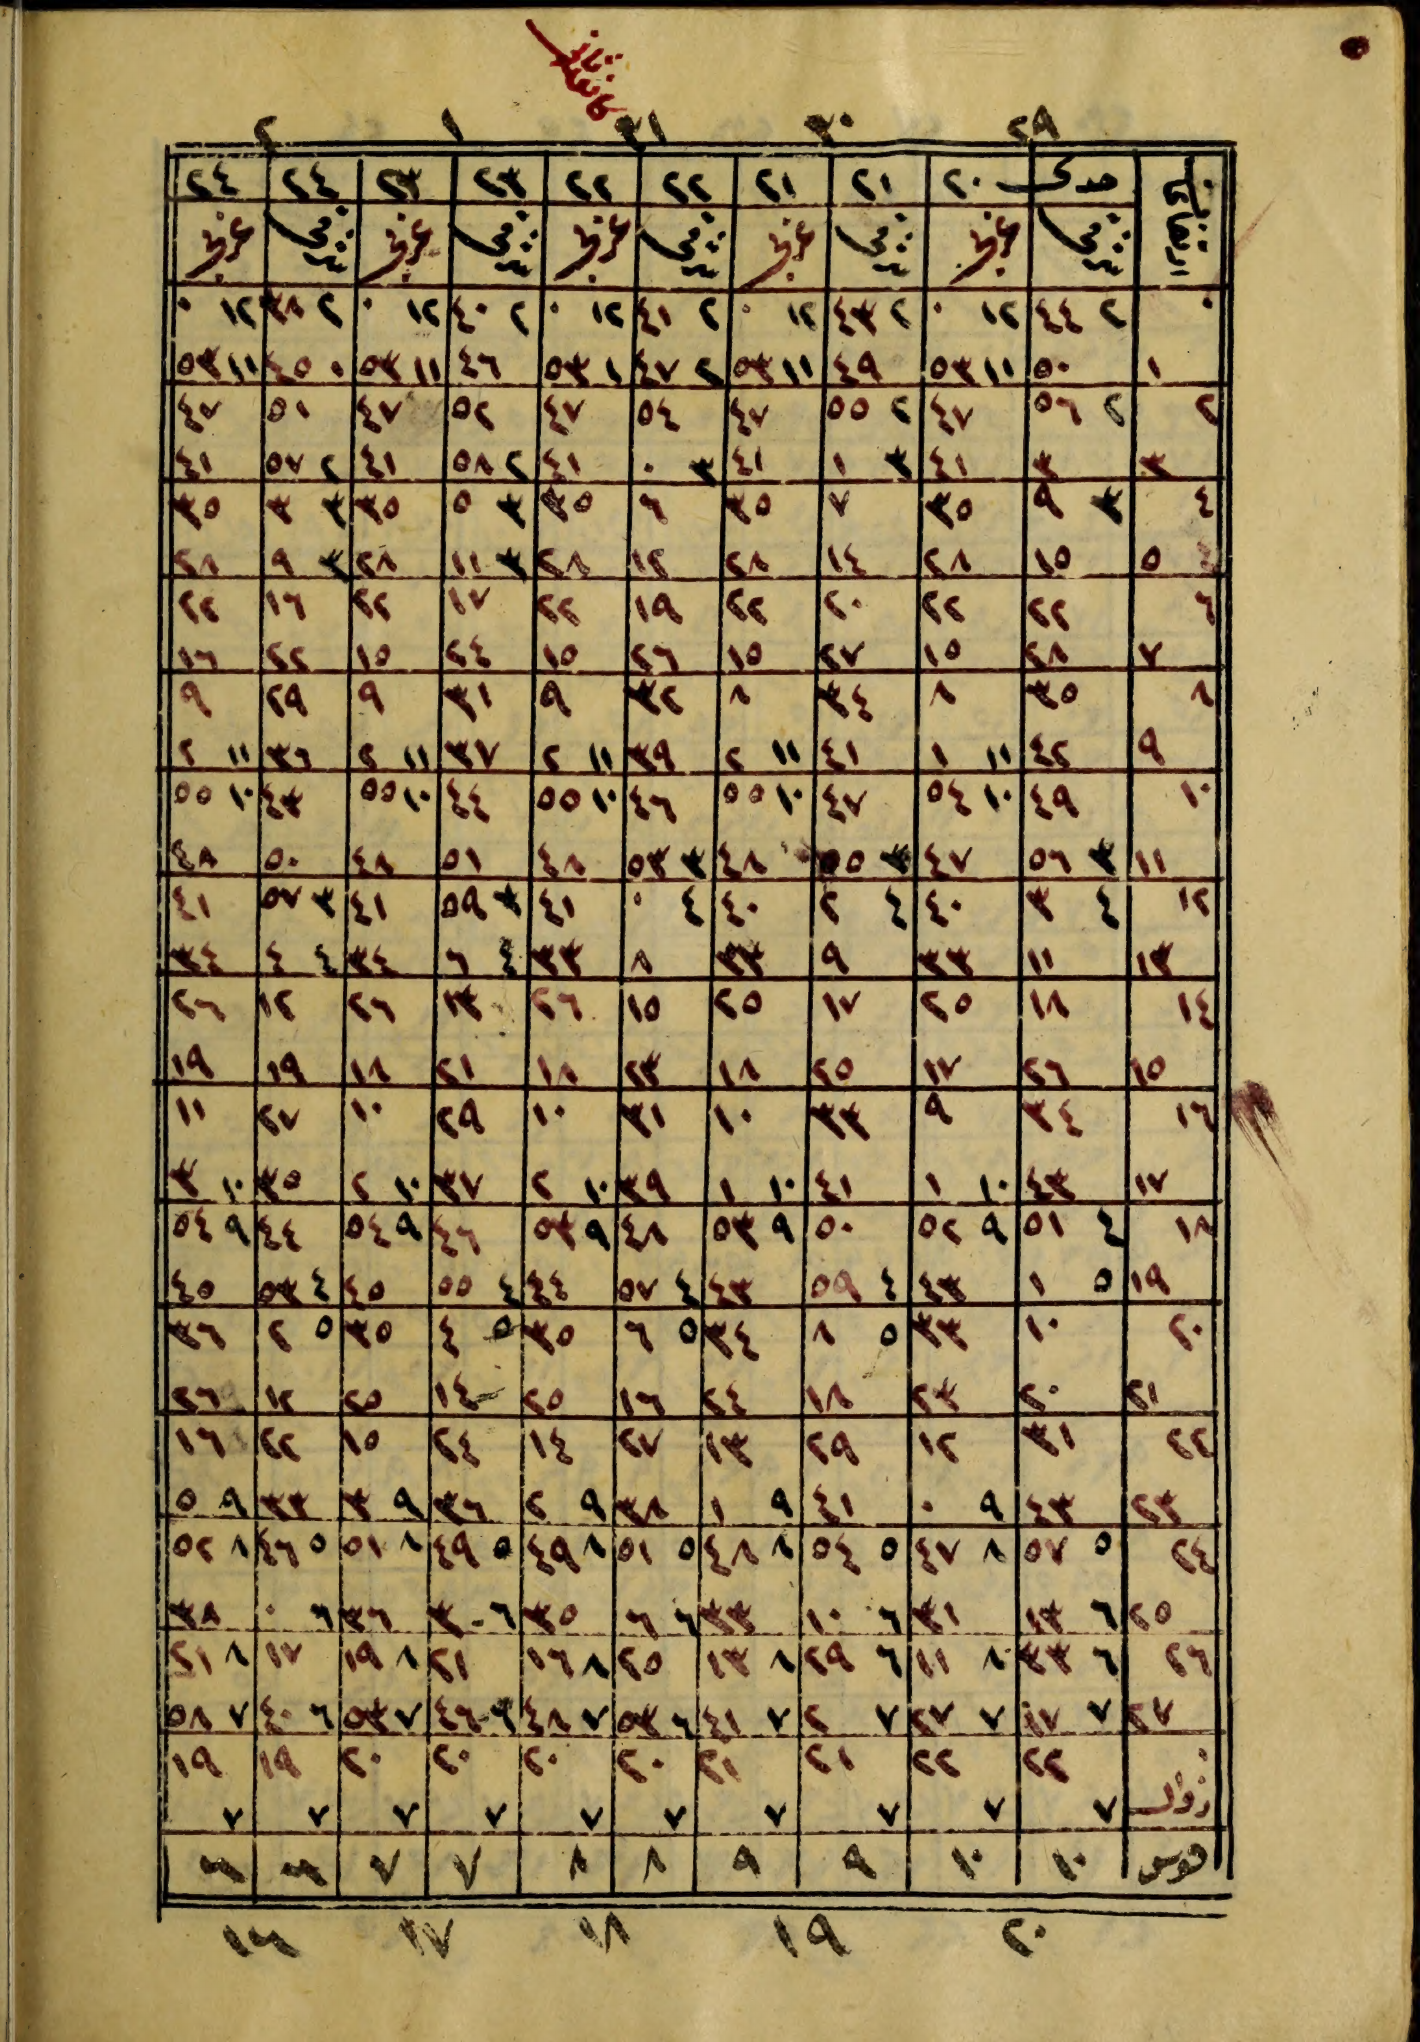 كانون ثاني
٢٩ ٣٠ ٣١ ١ ٢
جدى ٢٠ ٢١ ٢١ ٢٢ ٢٢ ٢٣ ٢٣ ٢٤ ٢٤
شرقي غربي شرقي غربي شرقي غربي شرقي غربي شرقي غربي
٠ ٢ ٤٤ ١٢ ٠ ٢ ٤٣ ١٢ ٠ ٢ ٤١ ١٢ ٠ ٢ ٤٠ ١٢ ٠ ٢ ٣٨ ١٢ ٠
١ ٥٠ ١١ ٥٣ ٤٩ ١١ ٥٣ ٢ ٤٧ ١ ٥٣ ٤٦ ١١ ٥٣ ٠ ٤٥ ١١ ٥٣
٢ ٢ ٥٦ ٤٧ ٢ ٥٥ ٤٧ ٥٤ ٤٧ ٥٢ ٤٧ ٥١ ٤٧
٣ ٣ ٤١ ٣ ١ ٤١ ٣ ٠ ٤١ ٢ ٥٨ ٤١ ٢ ٥٧ ٤١
٤ ٣ ٩ ٣٥ ٧ ٣٥ ٦ ٣٥ ٣ ٥ ٣٥ ٣ ٣ ٣٥
٥ ١٥ ٢٨ ١٤ ٢٨ ١٢ ٢٨ ٣ ١١ ٢٨ ٣ ٩ ٢٨
٦ ٢٢ ٢٢ ٢٠ ٢٢ ١٩ ٢٢ ١٧ ٢٢ ١٦ ٢٢
٧ ٢٨ ١٥ ٢٧ ١٥ ٢٦ ١٥ ٢٤ ١٥ ٢٢ ١٦
٨ ٣٥ ٨ ٣٤ ٨ ٣٢ ٩ ٣١ ٩ ٢٩ ٩
٩ ٤٢ ١١ ١ ٤١ ١١ ٢ ٣٩ ١١ ٢ ٣٧ ١١ ٢ ٣٦ ١١ ٢
١٠ ٤٩ ١٠ ٥٤ ٤٧ ١٠ ٥٥ ٤٦ ١٠ ٥٥ ٤٤ ١٠ ٥٥ ٤٣ ١٠ ٥٥
١١ ٣ ٥٦ ٤٧ ٣ ٥٥ ٤٨ ٣ ٥٣ ٤٨ ٥١ ٤٨ ٥٠ ٤٨
١٢ ٤ ٣ ٤٠ ٤ ٢ ٤٠ ٤ ٠ ٤١ ٣ ٥٩ ٤١ ٣ ٥٧ ٤١
١٣ ١١ ٣٣ ٩ ٣٣ ٨ ٣٣ ٤ ٦ ٣٤ ٤ ٤ ٣٤
١٤ ١٨ ٢٥ ١٧ ٢٥ ١٥ ٢٦ ١٣ ٢٦ ١٢ ٢٦
١٥ ٢٦ ١٧ ٢٥ ١٨ ٢٣ ١٨ ٢١ ١٨ ١٩ ١٩
١٦ ٣٤ ٩ ٣٣ ١٠ ٣١ ١٠ ٢٩ ١٠ ٢٧ ١١
١٧ ٤٣ ١٠ ١ ٤١ ١٠ ١ ٣٩ ١٠ ٢ ٣٧ ١٠ ٢ ٣٥ ١٠ ٣
١٨ ٤ ٥١ ٩ ٥٢ ٥٠ ٩ ٥٣ ٤٨ ٩ ٥٣ ٤٦ ٩ ٥٤ ٤٤ ٩ ٥٤
١٩ ٥ ١ ٤٣ ٤ ٥٩ ٤٣ ٤ ٥٧ ٤٤ ٤ ٥٥ ٤٥ ٤ ٥٣ ٤٥
٢٠ ١٠ ٣٣ ٥ ٨ ٣٤ ٥ ٦ ٣٥ ٥ ٤ ٣٥ ٥ ٢ ٣٦
٢١ ٢٠ ٢٣ ١٨ ٢٤ ١٦ ٢٥ ١٤ ٢٥ ١٢ ٢٦
٢٢ ٣١ ١٢ ٢٩ ١٣ ٢٧ ١٤ ٢٤ ١٥ ٢٢ ١٦
٢٣ ٤٣ ٩ ٠ ٤١ ٩ ١ ٣٨ ٩ ٢ ٣٦ ٩ ٣ ٣٣ ٩ ٥
٢٤ ٥ ٥٧ ٨ ٤٧ ٥ ٥٤ ٨ ٤٨ ٥ ٥١ ٨ ٤٩ ٥ ٤٩ ٨ ٥١ ٥ ٤٦ ٨ ٥٢
٢٥ ٦ ١٣ ٣١ ٦ ١٠ ٣٣ ٦ ٦ ٣٥ ٦ ٣ ٣٦ ٦ ٠ ٣٨
٢٦ ٦ ٣٣ ٨ ١١ ٦ ٢٩ ٨ ١٣ ٢٥ ٨ ١٦ ٢١ ٨ ١٩ ١٧ ٨ ٢١
٢٧ ٧ ١٧ ٧ ٢٧ ٧ ٢ ٧ ٤١ ٦ ٥٣ ٧ ٤٨ ٦ ٤٦ ٧ ٥٣ ٦ ٤٠ ٧ ٥٨
زوال ٢٢ ٢٢ ٢١ ٢١ ٢٠ ٢٠ ٢٠ ٢٠ ١٩ ١٩
٧ ٧ ٧ ٧ ٧ ٧ ٧ ٧ ٧ ٧
قوس ١٠ ١٠ ٩ ٩ ٨ ٨ ٧ ٧ ٦ ٦
٢٠ ١٩ ١٨ ١٧ ١٦